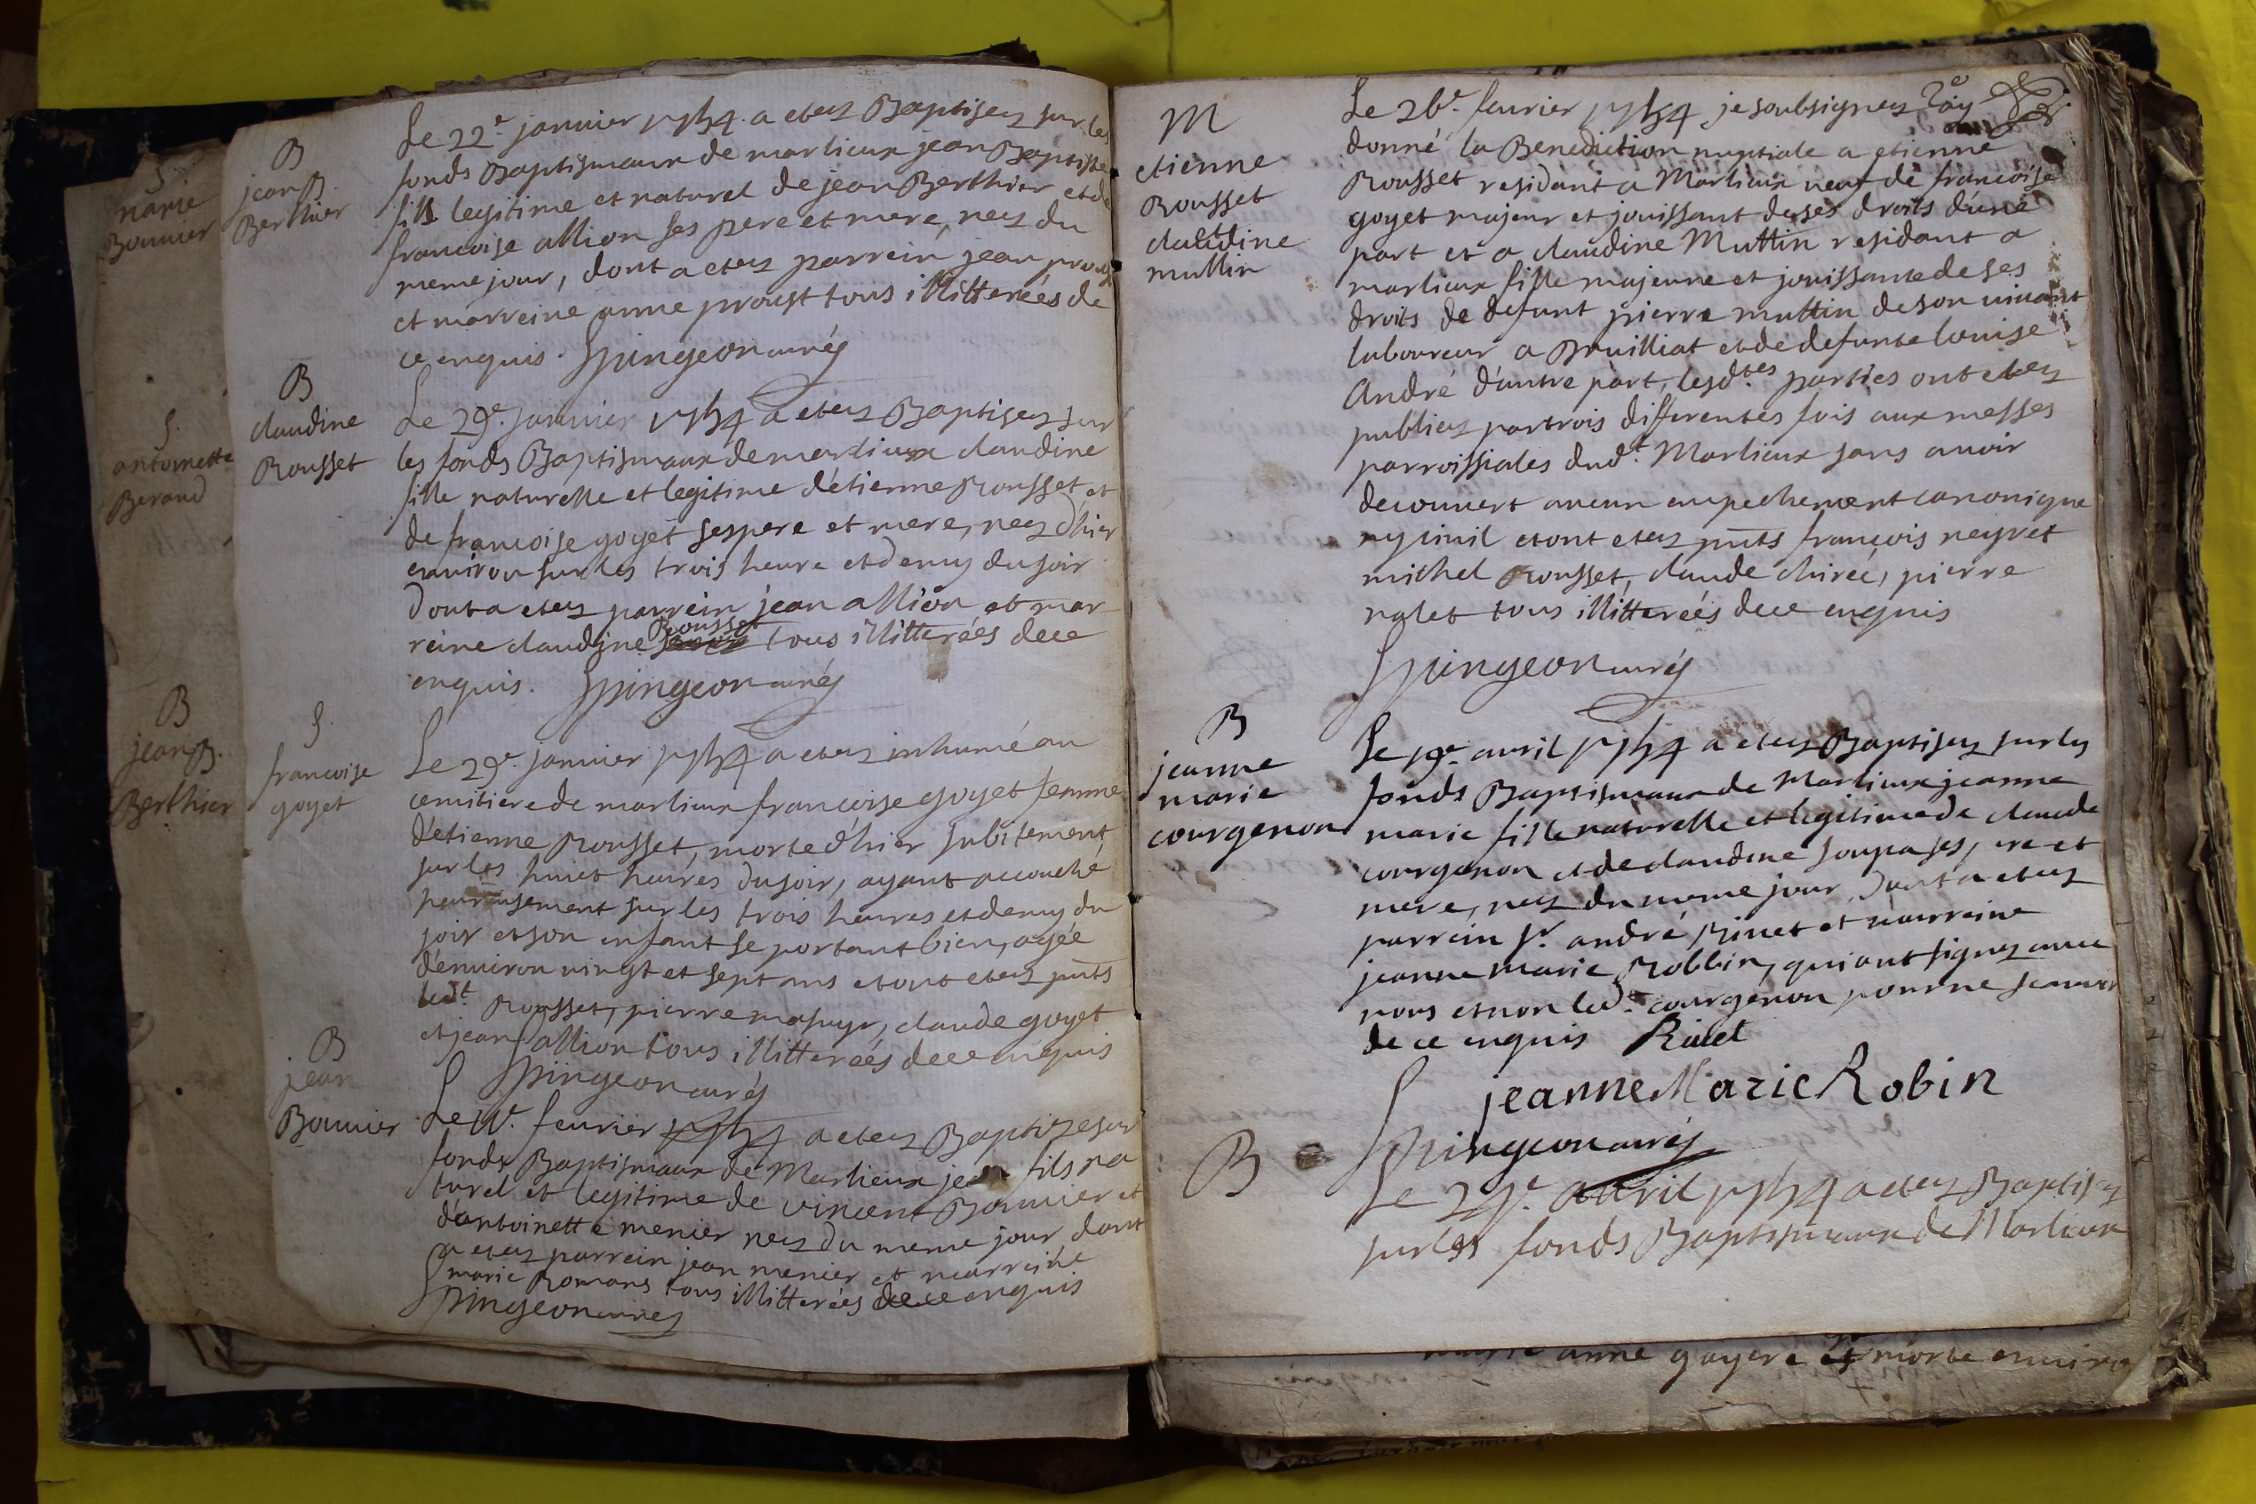 S
marie
Bonnier
S.
antoinette
Beraud
B
jean B.
Berthier
B
jean B.
Berthier
Le 22e. janvier 1754. a etez Baptisez sur les
fonds Baptismaux de marlieux jean Baptiste
fils legitime et naturel de jean Berthier et de
francoise allion ses pere et mere, nez du
meme jour, dont a etez parrein jean proust
et marreine anne proust tous illitterées de
ce enquis. Spingeon curéz
B
claudine
Rousset
Le 29e. janvier 1754 a etez Baptisez sur
les fonds Baptismaux de marlieux claudine
fille naturelle et legitime d'etienne Rousset et
de francoise goyet ses pere et mere, nez d'hier
environ sur les trois heure et demy du soir
dont a etez parrein jean allion et mar
reine claudine Rousset tous illitterées de ce
enquis. Spingeon curéz
S.
francoise
goyet
Le 29e. janvier 1754 a etez inhumé au
cemitiere de marlieux francoise goyet femme
d'etienne Rousset, morte d'hier subitement
sur les huict heures du soir, ayant accouché
heureusement sur les trois heures et demy du
soir et son enfant se portant bien, agée
d'environ vingt et sept ans et ont etez pnts
led.t Rousset, pierre masuyr, claude goyet
et jean allion tous illitterées de ce enquis
Spingeon curéz
B
jean
Bonnier
Le 11e. fevrier 1754 a etez Baptize sur
fonds Baptismaux de Marlieux jean fils na
turel et legitime de vincent Bonnier et
d'antoinette menier nez du meme jour dont
a etez parrein jean menier et marreine
marie Romans tous illitterées de ce enquis
Spingeon curez
M
etienne
Rousset
et
claudine
muttin
Le 26e. fevrier 1754 je soubsignez ay
donné la Benediction nuptiale a etienne
Rousset residant a Marlieux veuf de francoise
goyet majeur et jouissant de ses droits d'une
part et a claudine Muttin residant a
marlieux fille majeure et jouissante de ses
droits de defunt pierre muttin de son vivant
laboureur a Druilliat et de defunte louise
André d'autre part, lesd.tes parties ont etez
publiez par trois differentes fois aux messes
parroissiales dud.t Marlieux sans avoir
decouvert aucun empechement canonique
ny civil et ont etez pnts françois neyret
michel Rousset, claude chirée, pierre
nalet tous illitterées de ce enquis
Spingeon curéz
B
jeanne
marie
courgenon
Le 19e. avril 1754 a etez Baptisez sur les
fonds Baptismaux de Marlieux jeanne
marie fille naturelle et legitime de claude
courgenon et de claudine soupa ses pere et
mere, nez du meme jour dont a etez
parrein sr. andré Rivet et marreine
jeanne marie Robbin, qui ont signez avec
nous et non led.t courgenon pour ne scavoir
de ce enquis Rivet
jeanne Marie Robin
Spingeon curéz
B
Le 27e. avril 1754 a etez Baptisez
sur les fonds Baptismaux de Marlieux
marie anne goyere et morte environ